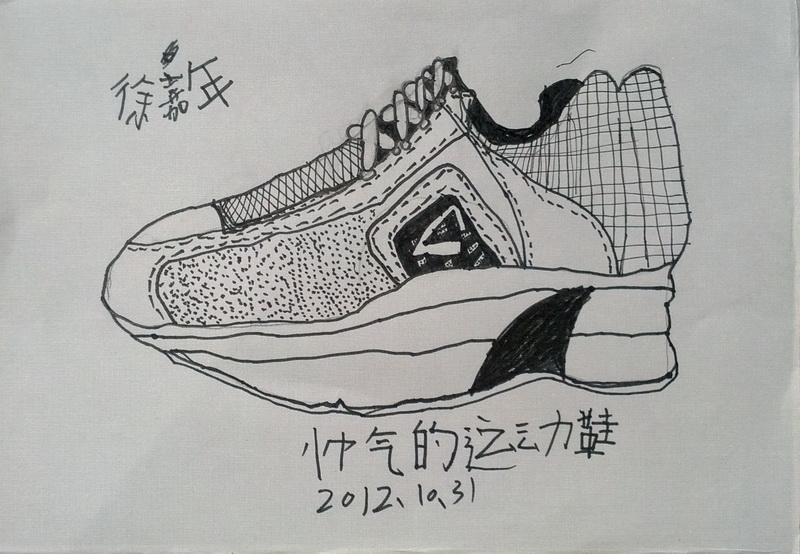 徐嘉年
帅气的运动鞋
2012.10.31